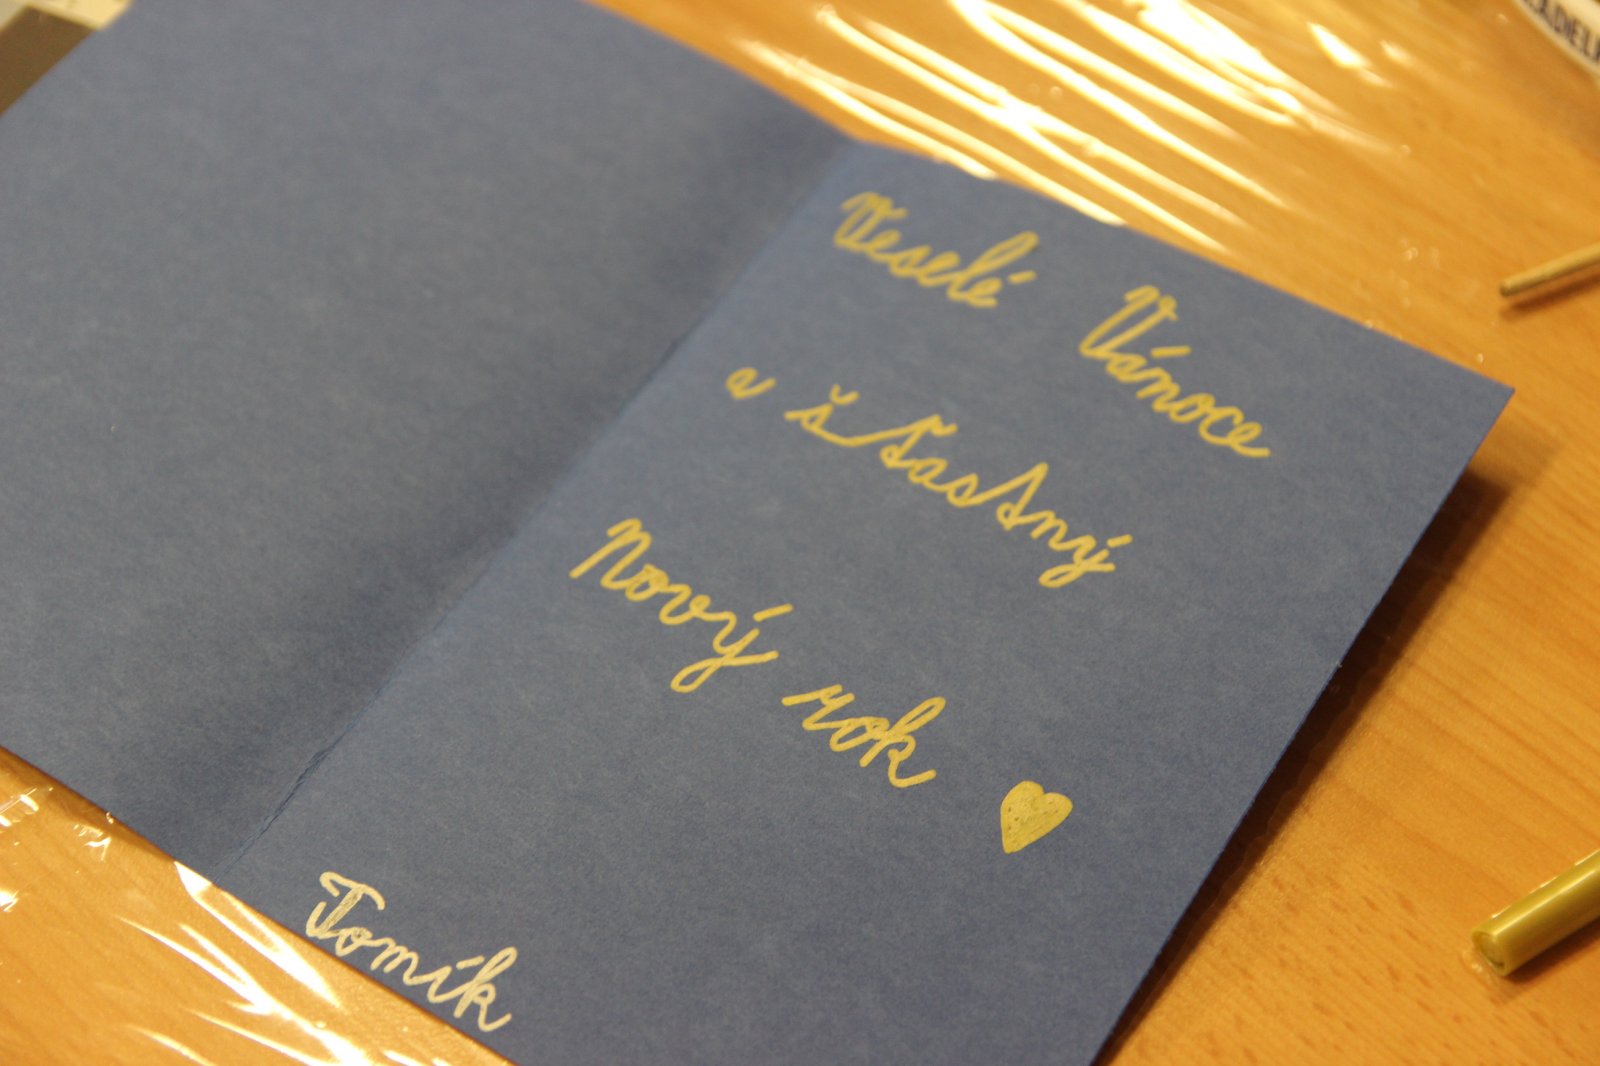 Veselé Vánoce
a šťastný
Nový rok ♥
Tomík